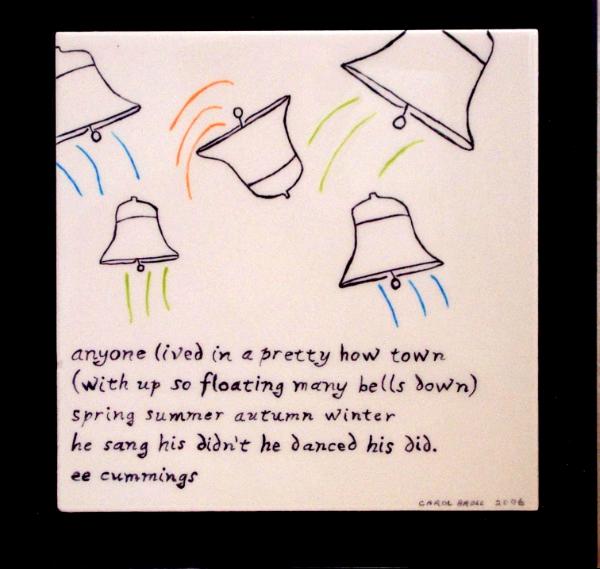 anyone lived in a pretty how town
(with up so floating many bells down)
spring summer autumn winter
he sang his didn't he danced his did.
ee cummings
CAROL 2006